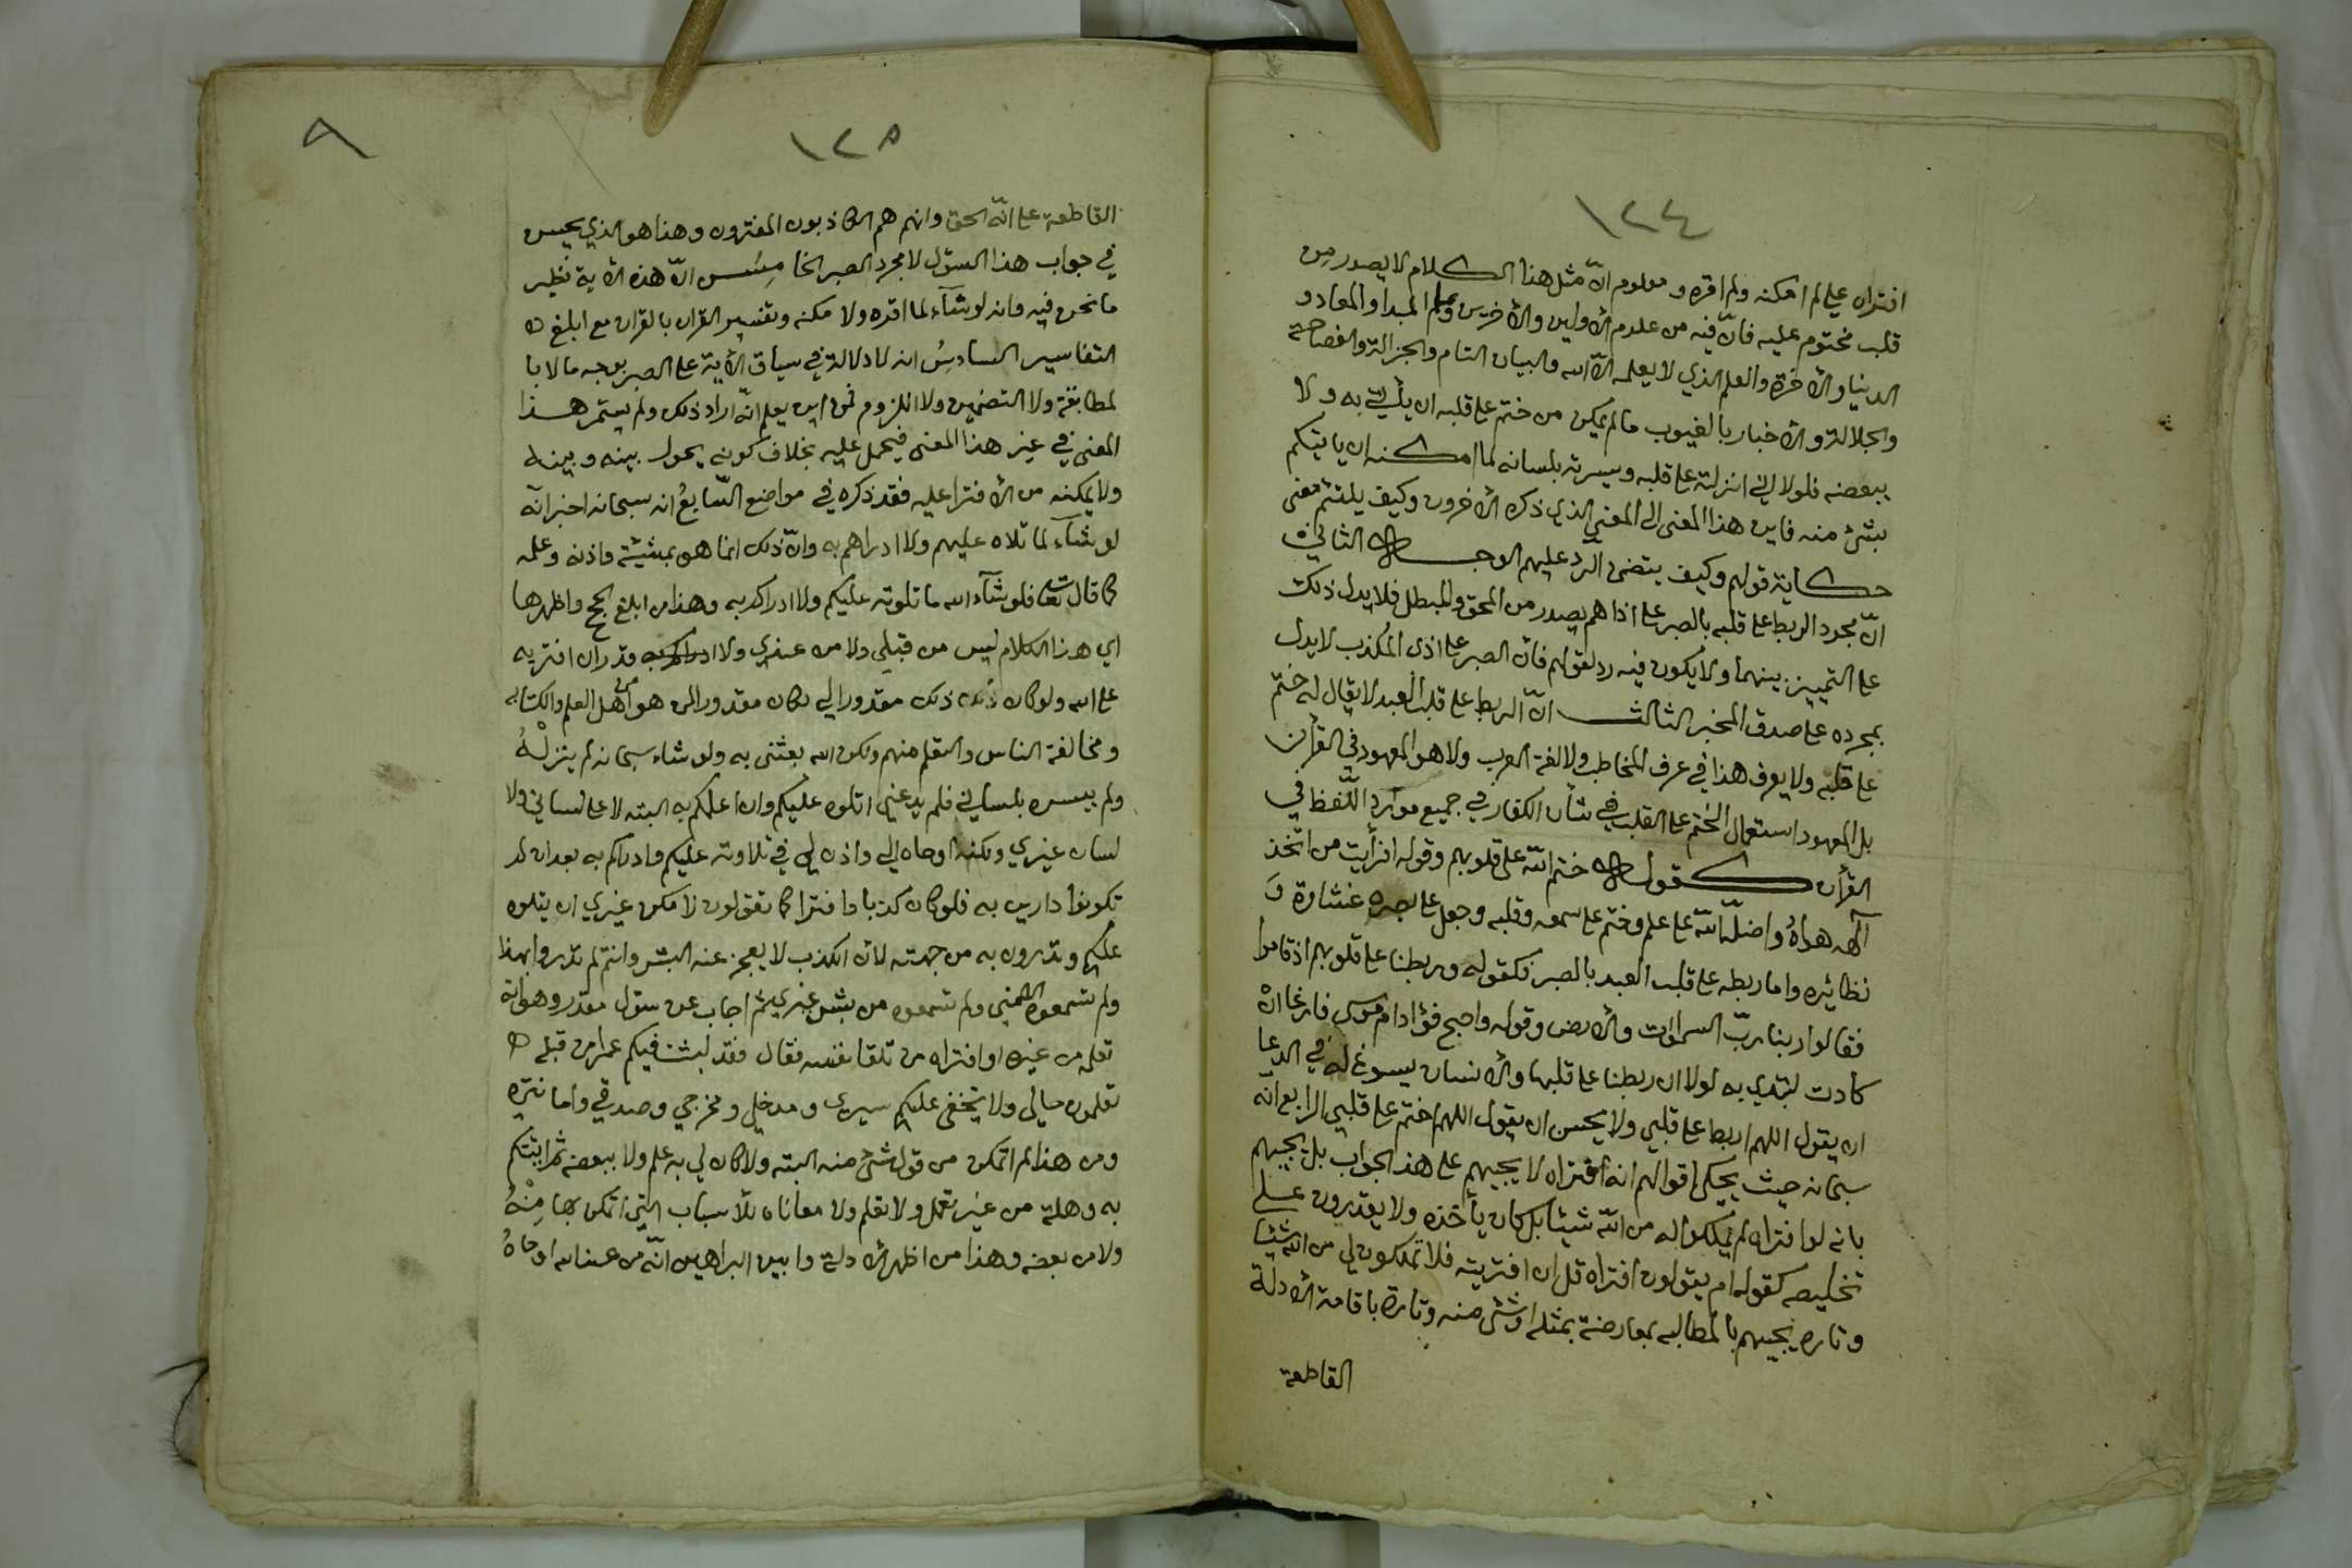 ١٢٤
افتراه علي لم امكنه ولم اقره ومعلوم انّ مثل هذا الكلام لا يصدر من
قلب مختوم عليه فانّ فيه من علوم الأولين والأخرين وعلم المبدا والمعاد و
الدنيا والأخرة والعلم الذي لا يعلمه الّا الله والبيان التام والجزالة والفصاحة
والجلالة والأخبار بالغيوب ما لم يمكن من ختم على قلبه ان يأتي به ولا
ببعضه فلولا اني انزلته على قلبه ويسرته بلسانه لما امكنه ان ياتيكم
بشئ منه فاين هذا المعنى الى المعنى الذي ذكره الأخرون وكيف يلتئم معنى
حكاية قولهم وكيف يتضمن الرد عليهم الوجه الثاني
انّ مجرد الربط على قلبه بالصبر على اذاهم يصدر من المحق والمبطل فلا يدل ذلك
على التمييز بينهما ولا يكون فيه رد لقولهم فان الصبر على اذى المكذب لا يدل
بمجرده على صدق المخبر الثالث انّ الربط على قلب العبد لا يقال له ختم
على قلبه ولا يعرف هذا في عرف المخاطب ولا لغة العرب ولا هو المعهود في القرأن
بل المعهود استعمال الختم على القلب في شأن الكفار في جميع موارد اللّفظ في
القرأن كقوله ختم الله على قلوبهم وقوله افرأيت من اتخذ
آلهه هواهُ واضلّه الله على علم وختم على سمعه وقلبه وجعل على بصره غشاوة وَ
نظائره واما ربطه على قلب العبد بالصبر فكقوله وربطنا على قلوبهم اذ قاموا
فقالوا ربنا ربّ السموات والأرض وقوله واصبح فؤاد ام موسى فارغا ان
كادت لتبدي به لولا ان ربطنا على قلبها والأنسان يسوغ له في الدعا
ان يقول اللهم اربط على قلبي ولا يحسن ان يقول اللهم اختم على قلبي الرابع انّه
سبحانه حيث يحكي اقوالهم انه افتراه لا يجيبهم على هذا الجواب بل يجيبهم
بانه لو افتراه لم يملكوا له من الله شيئا بل كان يأخذه ولا يقدرون على
تخليصه كقوله ام يقولون افتراه قل ان افتريته فلا تملكون لي من الله شيئا
وتاره يجيبهم بالمطالبه بمعارضة بمثله او شئ منه وتارة باقامة الأدلة
القاطعة
١٢٥
٩
القاطعة على انّه الحق وانهم هم الكاذبون المفترون وهذا هو الذي يحسن
في جواب هذا السؤل لا مجرد الصبر الخامِسُ انّ هذه الأية نظير
ما نحن فيه وانه لو شآء لما اقره ولا مكنه وتفسير القران بالقران مع ابلغ
التفاسير السادسُ انه لا دلالة في سياق الأية على الصبر بوجه ما لا با
لمطابقة ولا التضمين ولا اللزوم فمن اين يعلم انّه اراد ذلك ولم يستمر هذا
المعنى في غير هذا المعنى فيحمل عليه بخلاف كونه يحول بينه وبينه
ولا يمكنه من الأفترا عليه فقد ذكره في مواضع السّابعُ انه سبحانه اخبر انّه
لو شآء لما تلاه عليهم ولا ادراهم به وانّ ذلك انما هو بمشيئة واذنه وعلمه
كما قال تعا فلو شآء الله ما تلوته عليكم ولا ادراكم به وهذا من ابلغ الحجج واظهرها
اي هذا الكلام ليس من قبلي ولا من عندي ولا اقدر ان افتريه
على الله ولو كان ذلك مقدورا لي لكان مقدورا لمن هو من اهل العلم والكتابه
ومخالفة الناس والتعلم منهم ولكن الله بعثنى به ولو شاء سبحانه لم ينزلْهُ
ولم ييسره بلساني فلم يدعني اتلوه عليكم وان اعلمكم به البته لا على لساني ولا
لسان غيري ولكنه اوحاه الي واذن لي في تلاوته عليكم وادراكم به بعد ان لم
تكونوا دارين به فلو كان كذبا وافترا كما تقولون لامكن غيري ان يتلوه
عليكم وتدرون به من جهته لأن الكذب لا يعجز عنه البشر وانتم لم تدروا بهذا
ولم تسمعوه الا مني ولم تسمعوه من بشر غيري ثم اجاب عن سؤل مقدر وهو انه
تعلمه من غيره او افتراه من تلقا نفسه فقال فقد لبثت فيكم عمرا من قبله
تعلمون حالي ولا يخفى عليكم سيري ومدخلي ومخرجي وصدقي وامانتي
ومن هذا لم اتمكن من قول شئ منه البته ولا كان لي به علم ولا ببعضه ثم اتيتكم
به وهلة من غير تعمل ولا تعلم ولا معاناه للأسباب التي اتمكن بها مِنْهُ
ولا من بعضه وهذا من اظهر الأدلة وابين البراهين انّه من عند الله اوحاهُ